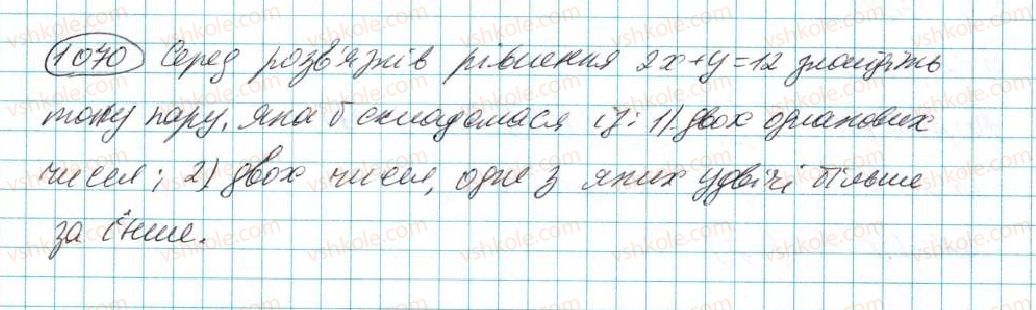 1070 Серед розв'язків рівняння 2x+y=12 знайдіть
таку пару, яка б складалася із: 1) двох однакових
чисел; 2) двох чисел, одне з яких удвічі більше
за інше.